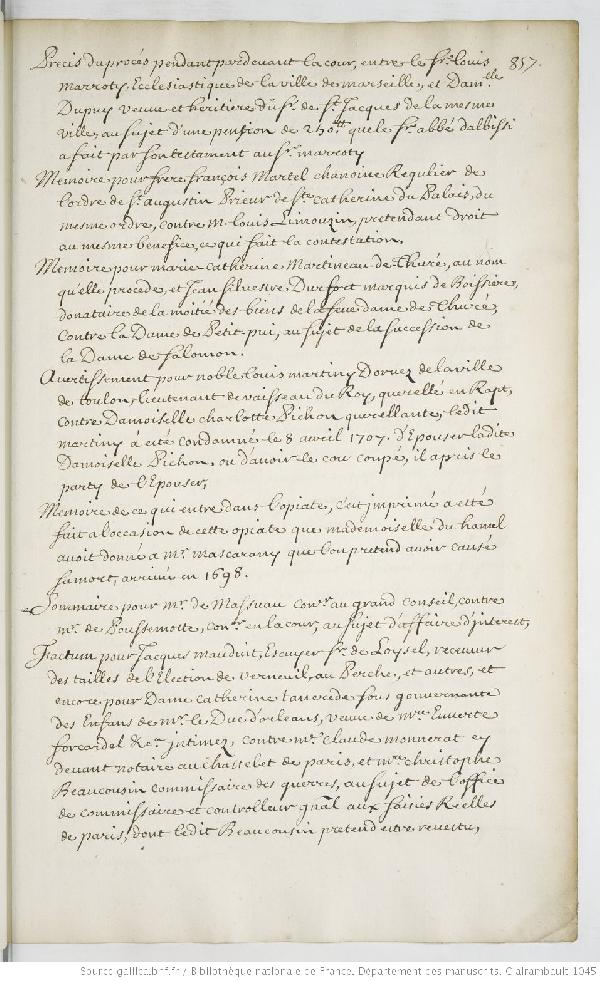 Precis du procés pendant pardevant la cour, entre le Sr. Louis 857.
Marroty, Ecclesiastique de la ville de marseille, et Dam.lle
Dupuy veuve et heritiere du Sr. de St. Jacques de la mesme
ville, au sujet d'une pension de 250tt que le Sr. abbé dalbissi
a fait par son testament au Sr. marroty
Memoire pour frere françois Martel chanoine Regulier de
l'ordre de St. augustin Prieur de Ste catherine du Palais, du
mesme ordre, contre M. Louis Limouzin, pretendant droit
au mesme benefice, ce qui fait la contestation.
Memoire pour marie catherine Martineau de Thuré, au nom
qu'elle procede, et Jean silvestre Durfort marquis de Boissiere,
donataires de la moitié des biens de la feue dame de Thuré,
contre la Dame de Petit-pui, au sujet de la succession de
la Dame de salomon.
Avertissement pour noble Louis martiny Dorvez de la ville
de toulon, lieutenant de vaisseau du Roy, querellé en Rapt,
contre Damoiselle charlotte Pichon querellante, ledit
martiny à eté condamné le 8 avril 1707. d'Epouser ladite
Damoiselle Pichon, ou d'avoir le cou coupé, il a pris le
party de l'Epouser,
Memoire de ce qui entre dans l'opiate, c'est imprimé a eté
fait a l'occasion de cette opiate que mademoiselle du hamel
avoit donné a Mr. mascarany que l'on pretend avoir causé
sa mort, arrivée en 1698.
Sommaire pour Mr. de Massuau conr. au grand conseil, contre
Mr. de Poussemotte, conr. en la cour, au sujet d'affaire d'interest,
Factum pour Jacques mauduit, Escuyer Sr. de Loysel, receveur
des tailles de l'Election de verneuil, au Perche, et autres, et
encore pour Dame catherine tancrede sous gouvernante
des Enfans de Mr. le Duc d'orleans, veuve de Mre Euverte
forcadel &ca. intimez, contre Mr. claude monnerat cy
devant notaire au chastelet de paris, et Mre christophe
Beaucousin commissaire des guerres, au sujet de l'office
de commissaire et controlleur gnãl aux saisies Réelles
de paris, dont ledit Beaucousin pretend etre revetu,
Source gallica.bnf.fr / Bibliothèque nationale de France. Département des manuscrits. Clairambault 1045